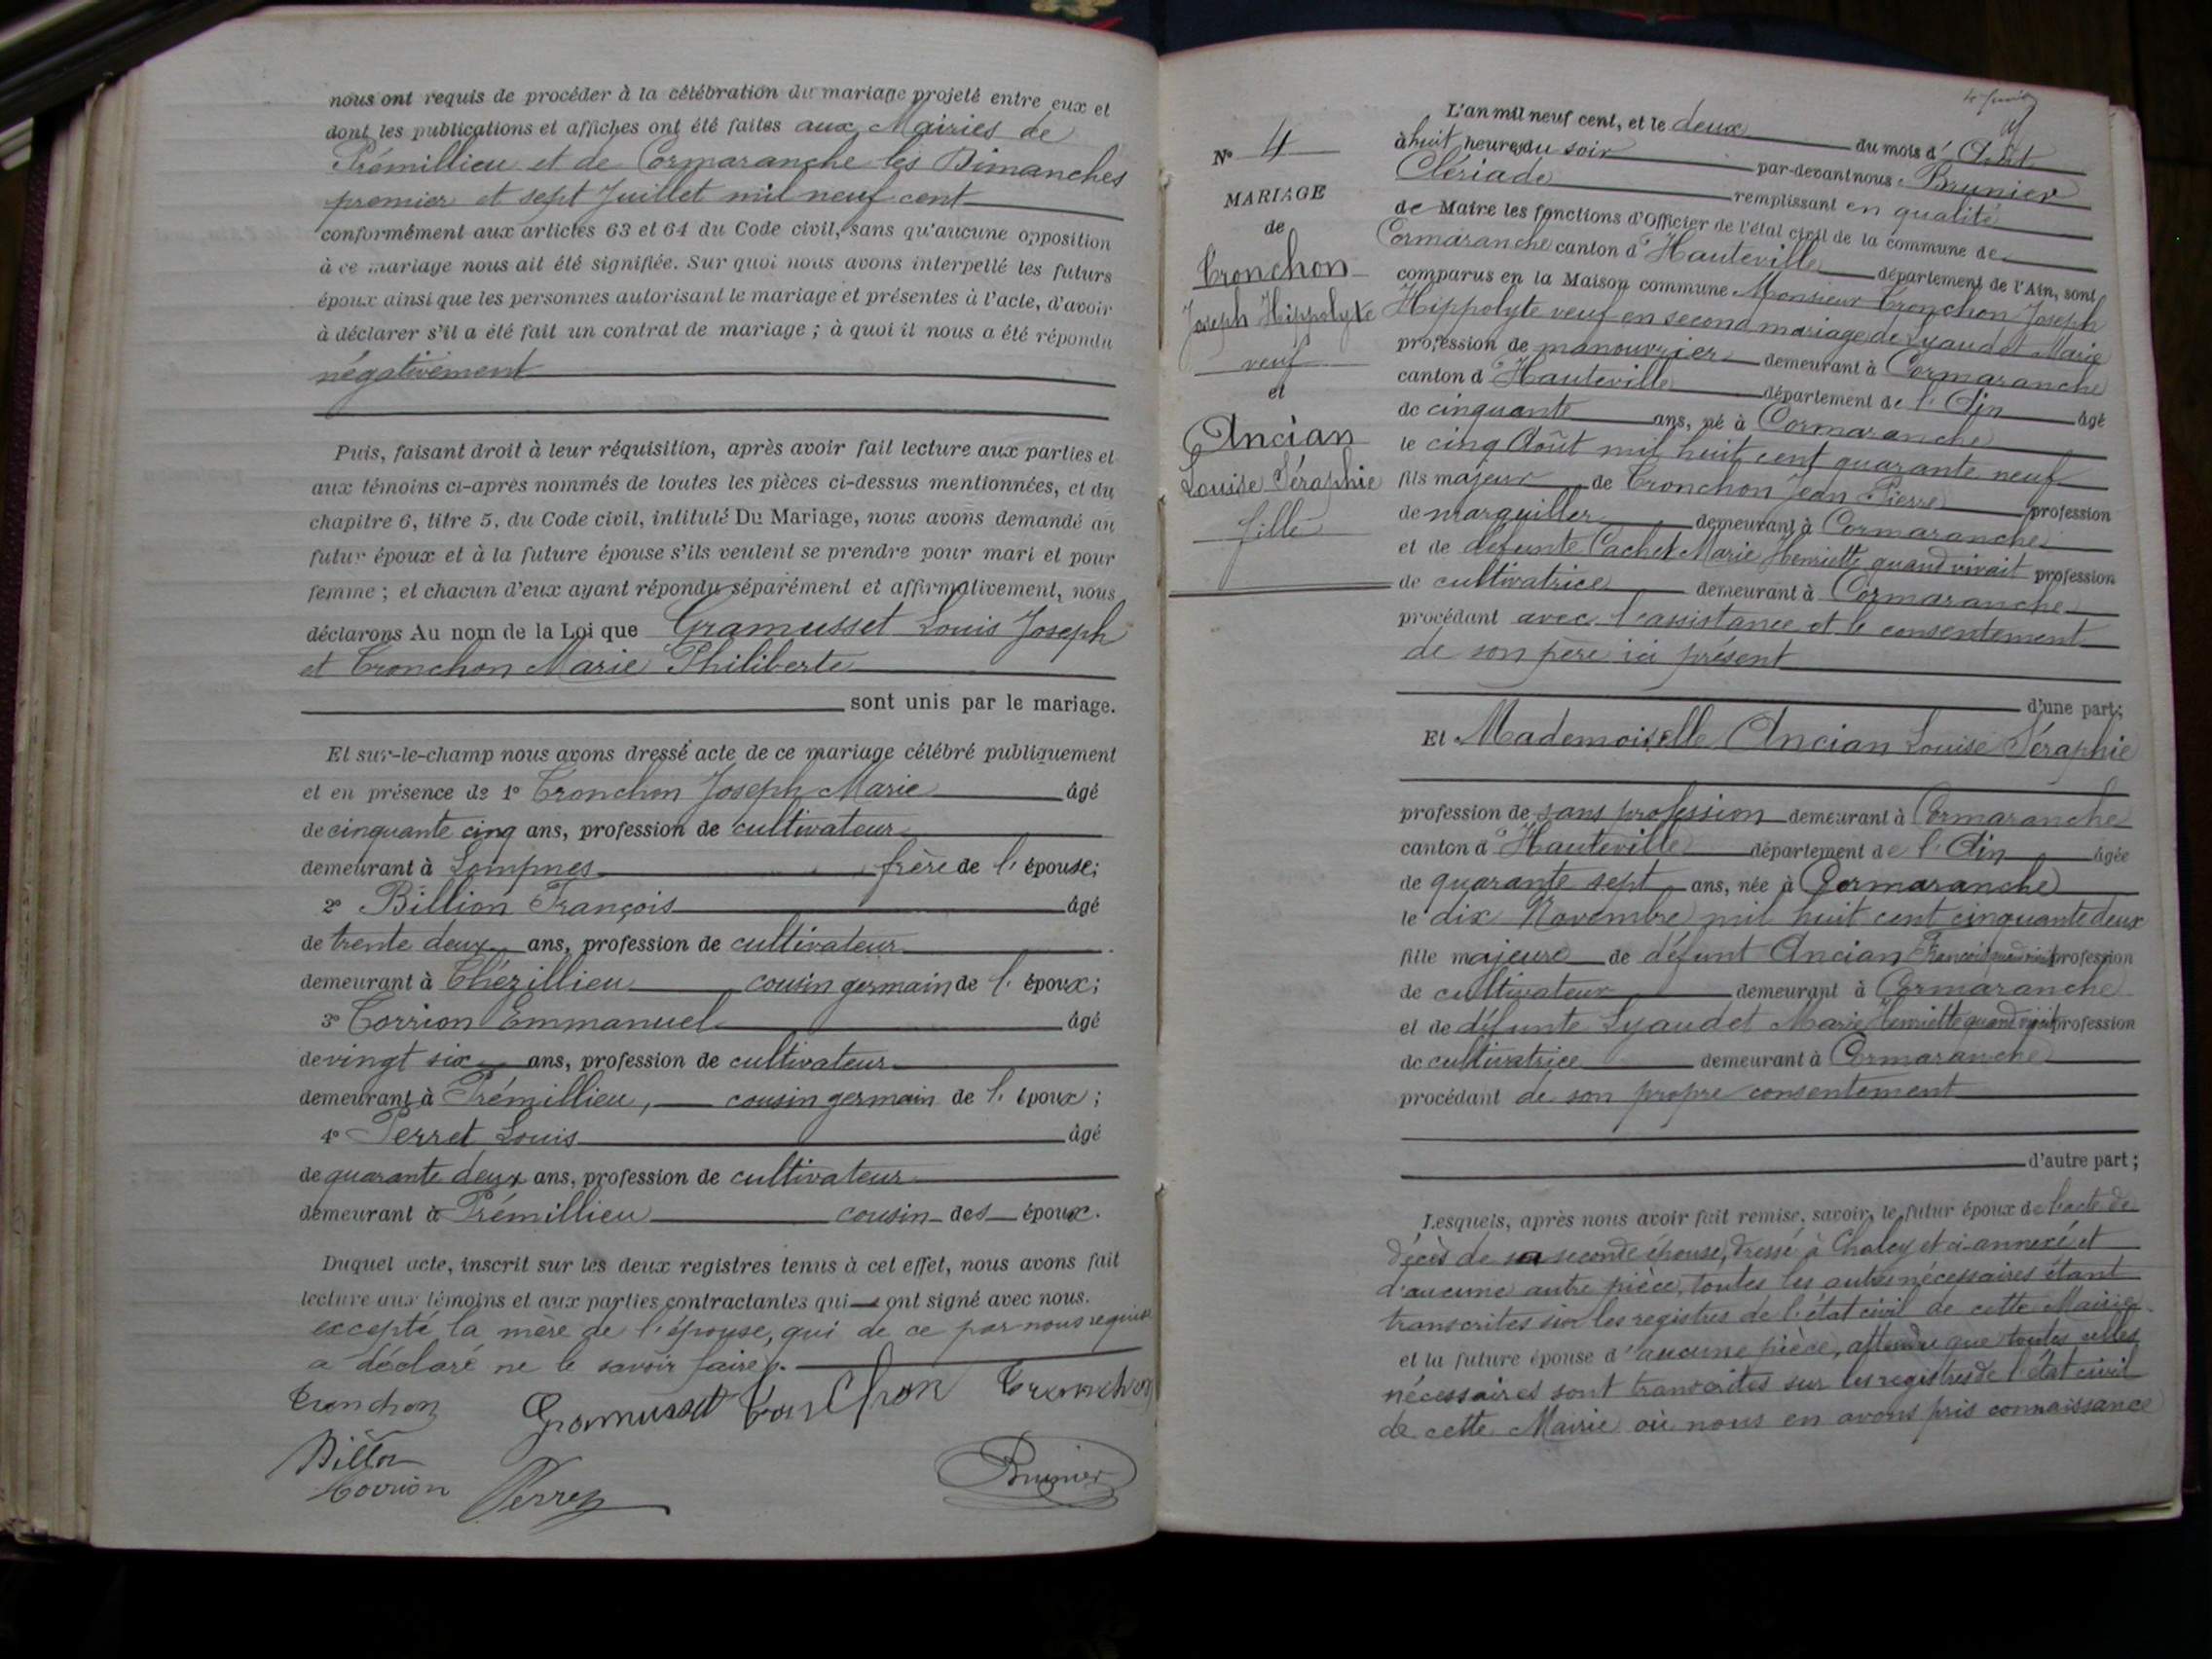 nous ont requis de procéder à la célébration du mariage projeté entre eux et
dont les publications et affiches ont été faites aux Mairies de
Prémillieu et de Cormaranche les Dimanches
premier et sept Juillet mil neuf cent
conformément aux articles 63 et 64 du Code civil, sans qu'aucune opposition
à ce mariage nous ait été signifiée. Sur quoi nous avons interpellé les futurs
époux ainsi que les personnes autorisant le mariage et présentes à l'acte, d'avoir
à déclarer s'il a été fait un contrat de mariage ; à quoi il nous a été répondu
négativement
Puis, faisant droit à leur réquisition, après avoir fait lecture aux parties et
aux témoins ci-après nommés de toutes les pièces ci-dessus mentionnées, et du
chapitre 6, titre 5, du Code civil, intitulé Du Mariage, nous avons demandé au
futur époux et à la future épouse s'ils veulent se prendre pour mari et pour
femme ; et chacun d'eux ayant répondu séparément et affirmativement, nous
déclarons Au nom de la Loi que Gramusset Louis Joseph
et Tronchon Marie Philiberte
sont unis par le mariage.
Et sur-le-champ nous avons dressé acte de ce mariage célébré publiquement
et en présence de 1° Tronchon Joseph Marie âgé
de cinquante cinq ans, profession de cultivateur
demeurant à Lompnes frère de l' épouse;
2° Billion François âgé
de trente deux ans, profession de cultivateur
demeurant à Thézillieu cousin germain de l' époux;
3° Torrion Emmanuel âgé
de vingt six ans, profession de cultivateur
demeurant à Prémillieu, cousin germain de l' époux ;
4° Perret Louis âgé
de quarante deux ans, profession de cultivateur
demeurant à Prémillieu cousin des époux.
Duquel acte, inscrit sur les deux registres tenus à cet effet, nous avons fait
lecture aux témoins et aux parties contractantes qui ont signé avec nous.
excepté la mère de l'épouse, qui de ce par nous requise
a déclaré ne le savoir faire.
Tronchon Gramusset Tronchon Tronchon
Billion
Torrion Perret Brunier
N° 4
MARIAGE
de
Tronchon
Joseph Hippolyte
veuf
et
Ancian
Louise Séraphie
fille
L'an mil neuf cent, et le deux du mois d' Août
à huit heures du soir par-devant nous Brunier
Clériade remplissant en qualité
de Maire les fonctions d'Officier de l'état civil de la commune de
Cormaranche canton d' Hauteville département de l'Ain, sont
comparus en la Maison commune Monsieur Tronchon Joseph
Hippolyte veuf en second mariage de Lyaudet Marie
profession de manouvrier demeurant à Cormaranche
canton d' Hauteville département de l' Ain âgé
de cinquante ans, né à Cormaranche
le cinq Août mil huit cent quarante neuf
fils majeur de Tronchon Jean Pierre profession
de marguiller demeurant à Cormaranche
et de défunte Cachet Marie Henriette quand vivait profession
de cultivatrice demeurant à Cormaranche
procédant avec l'assistance et le consentement
de son père ici présent
d'une part;
Et Mademoiselle Ancian Louise Séraphie
profession de sans profession demeurant à Cormaranche
canton d' Hauteville département de l' Ain âgée
de quarante sept ans, née à Cormaranche
le dix Novembre mil huit cent cinquante deux
fille majeure de défunt Ancian François quand vivait profession
de cultivateur demeurant à Cormaranche
et de défunte Lyaudet Marie Henriette quand vivait profession
de cultivatrice demeurant à Cormaranche
procédant de son propre consentement
d'autre part ;
Lesquels, après nous avoir fait remise, savoir, le futur époux de l'acte de
décès de sa seconde épouse, dressé à Chaley et ci-annexé et
d'aucune autre pièce, toutes les autres nécessaires étant
transcrites sur les registres de l'état civil de cette Mairie
et la future épouse d'aucune pièce, attendu que toutes celles
nécessaires sont transcrites sur les registres de l'état civil
de cette Mairie où nous en avons pris connaissance